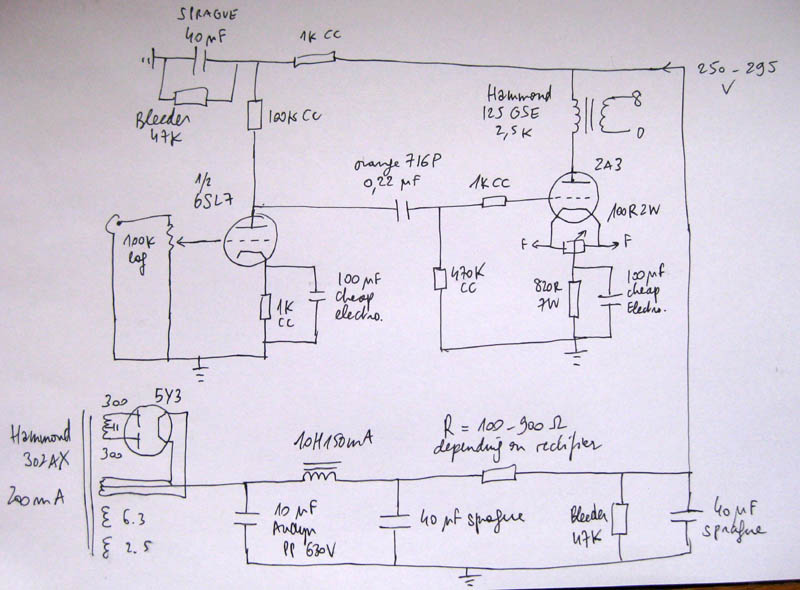 SPRAGUE
40 µF
1K CC
Bleeder
47K
100K CC
250 - 295
V
Hammond
125 GSE
2,5K
8
0
1/2
6SL7
orange 716P
0,22 µF
1K CC
2A3
100R 2W
F
F
100K
log
1K
CC
100 µF
cheap
electro.
470K
CC
820R
7W
100 µF
cheap
Electro.
300
5Y3
300
Hammond
302AX
200mA
6.3
2.5
10H 150mA
R = 100 - 900 Ω
depending on rectifier
10 µF
PP 630V
40 µF sprague
Bleeder
47K
40 µF
sprague